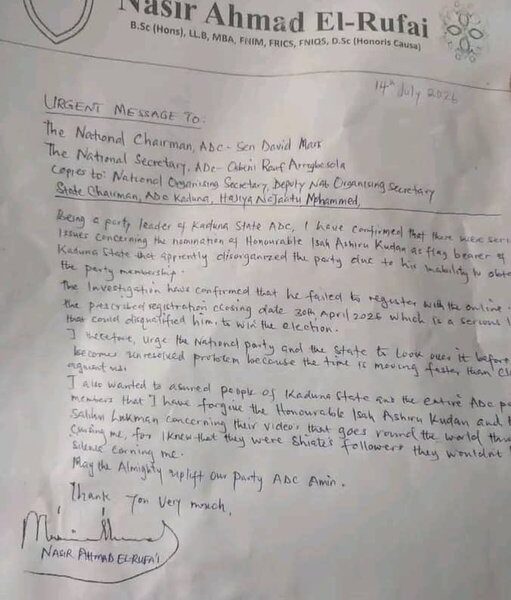 Nasir Ahmad El-Rufai
B.Sc (Hons), LL.B, MBA, FNIM, FRICS, FNIQS, D.Sc (Honoris Causa)
14th July 2026
URGENT MESSAGE TO:
The National Chairman, ADC - Sen David Mark
The National Secretary, ADC - Rauf Aregbesola
Copies to: National Organising Secretary, Deputy Nat Organising Secretary
State Chairman, ADC Kaduna, Hajiya Najaatu Mohammed,
Being a party leader of Kaduna State ADC, I have confirmed that there were seri
Issues concerning the nomination of Honourable Isah Ashiru Kudan as flag bearer of
Kaduna State that apprently disorganized the party due to his inability to obta
the party membership.
The Investigation have confirmed that he failed to register with the online
the prescribed registration closing date 30th April 2026 which is a serious l
that could disqualified him to win the election.
I therefore, urge the National party and the State to look over it before
become unresolved problem because the time is moving faster than cl
against us.
I also wanted to assured people of Kaduna State and the entire ADC p
members that I have forgive the Honourable Isah Ashiru Kudan and
Salihu Lukman concerning their videos that goes round the world thr
Cursing me, for I knew that they were Shiates followers they wouldn't
Silence me.
May the Almighty uplift our party ADC Amin.
Thank you very much,
NASIR AHMAD EL-RUFA'I